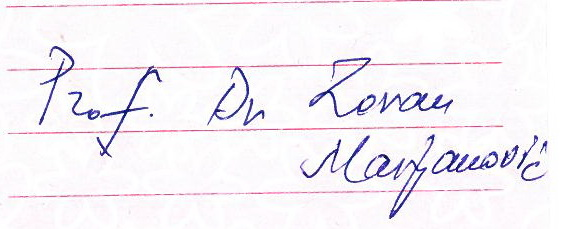 Prof. Dr Zoran
Marjanović